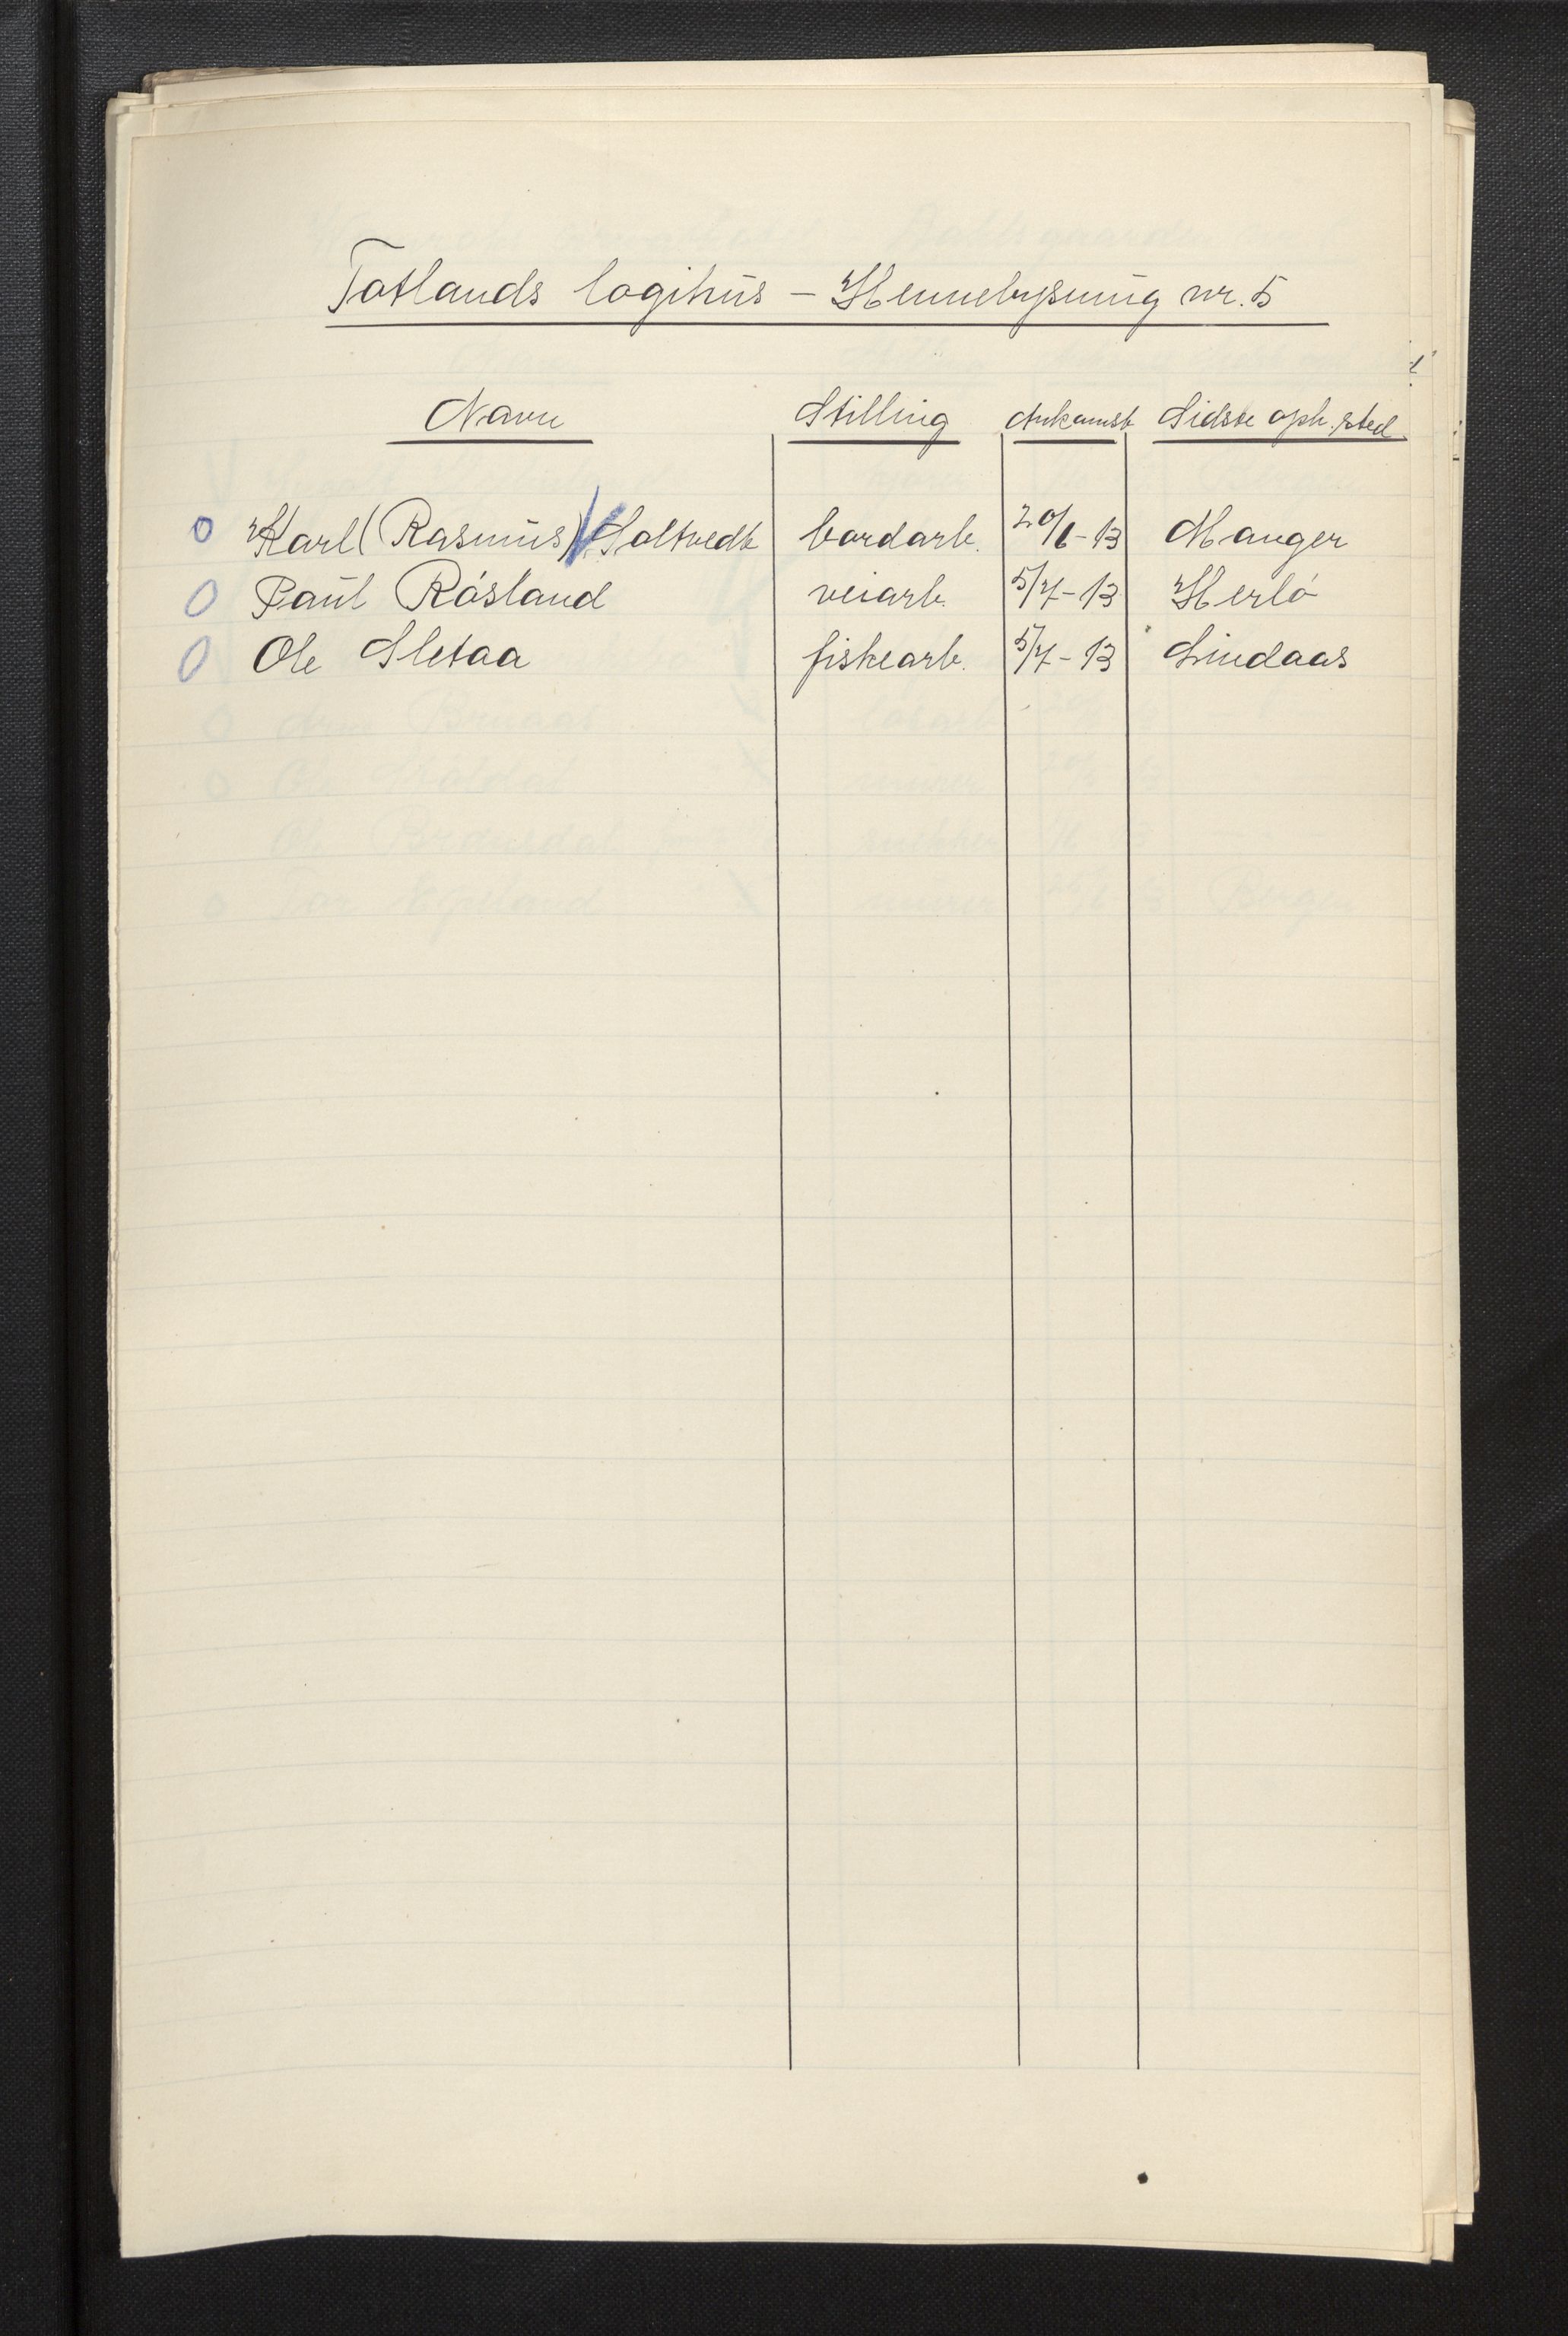 Totlands logihus – Hennebysmug nr. 5
Navn Stilling Ankomst Sidste oph. sted
Karl (Rasmus) Soltvedt bordarb. 20/6 - 13 Manger
Paul Røsland veiarb. 5/7 - 13 Herlø
Ole Sletaa fiskearb. 5/7 - 13 Lindaas